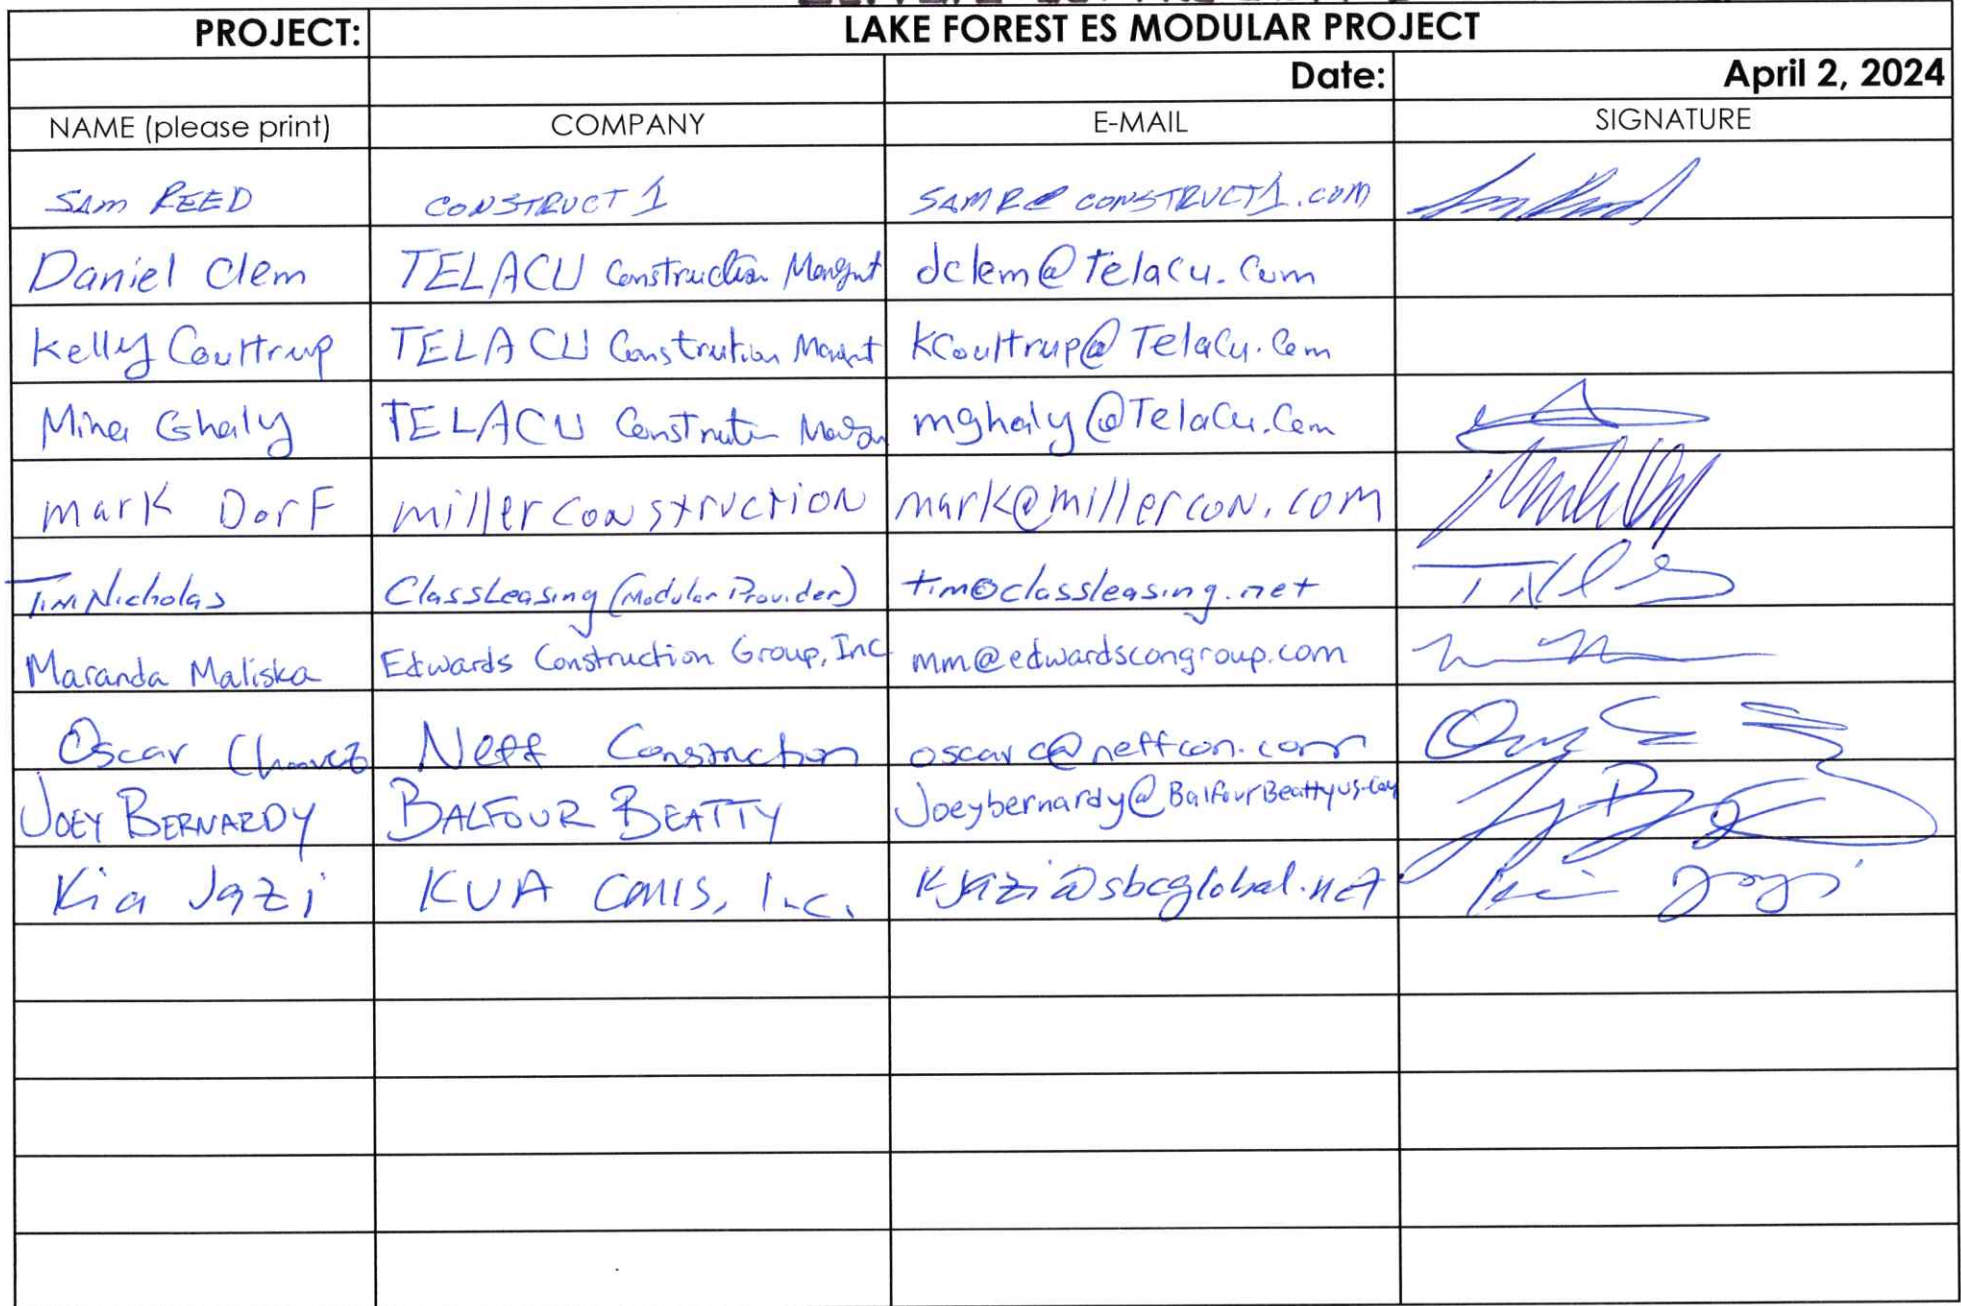 PROJECT: LAKE FOREST ES MODULAR PROJECT
Date: April 2, 2024
NAME (please print) COMPANY E-MAIL SIGNATURE
SAM REED CONSTRUCT 1 SAMR@CONSTRUCT1.COM
Daniel Clem TELACU Construction Mangmt dclem@Telacu.Com
Kelly Couttrup TELACU Constrution Mangmt KCoulttrup@Telacu.Com
Mina Ghaly TELACU mghaly@TelaCu.Com
Mark Dorf millerconstruction mark@millercon.com
Tim Nicholas ClassLeasing (Modular Provider) tim@classleasing.net
Maranda Maliska Edwards Construction Group, Inc mm@edwardscongroup.com
Oscar Chavez Neff Construction oscarc@neffcon.com
JOEY BERNARDY BALFOUR BEATTY Joeybernardy@BalfourBeattyus.com
Kia Jazi KUA CMIS, Inc. KJazi@sbcglobal.net Kia Jazi